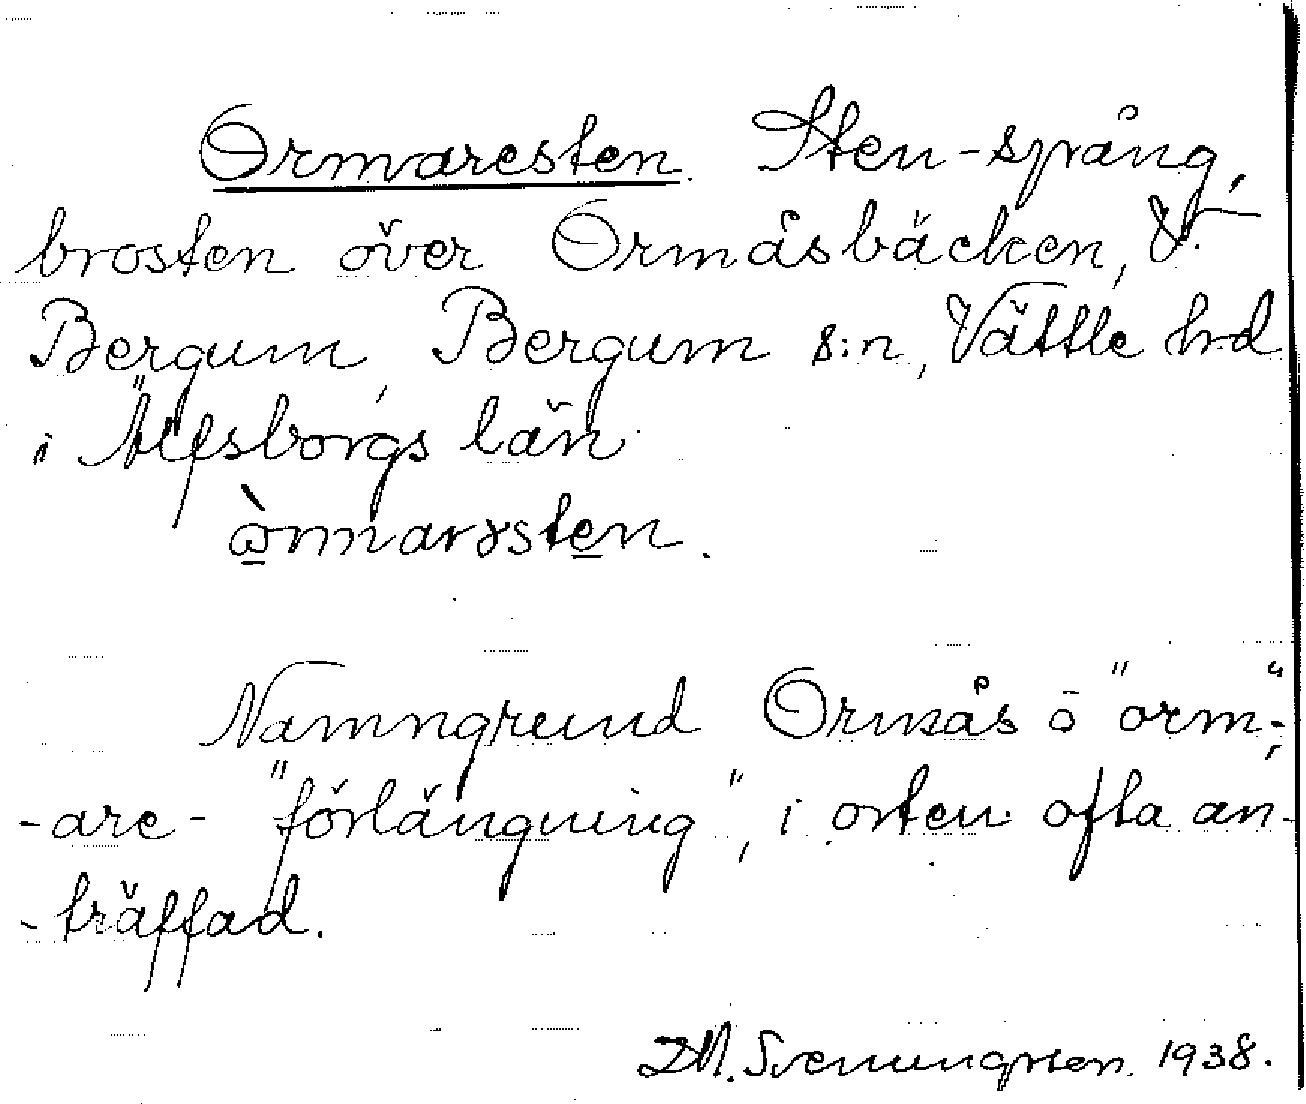 Ormaresten. Sten-spång,
brosten över Ormåsbäcken, V.
Bergum, Bergum s:n, Vättle hd
i Älfsborgs län
ꞷ̀rmarɤsten.
Namngrund Ormås ō "orm",
-are- "förlängning", i orten ofta an-
-träffad.
DM. Svenungsson. 1938.